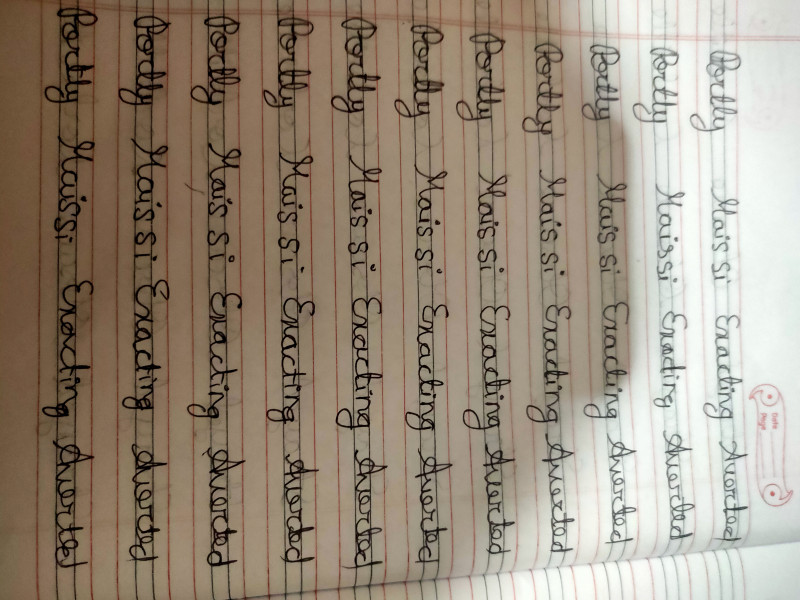 Date
Page
Portly Maissi Exacting Averted
Portly Maissi Exacting Averted
Portly Maissi Exacting Averted
Portly Maissi Exacting Averted
Portly Maissi Exacting Averted
Portly Maissi Exacting Averted
Portly Maissi Exacting Averted
Portly Maissi Exacting Averted
Portly Maissi Exacting Averted
Portly Maissi Exacting Averted
Portly Maissi Exacting Averted